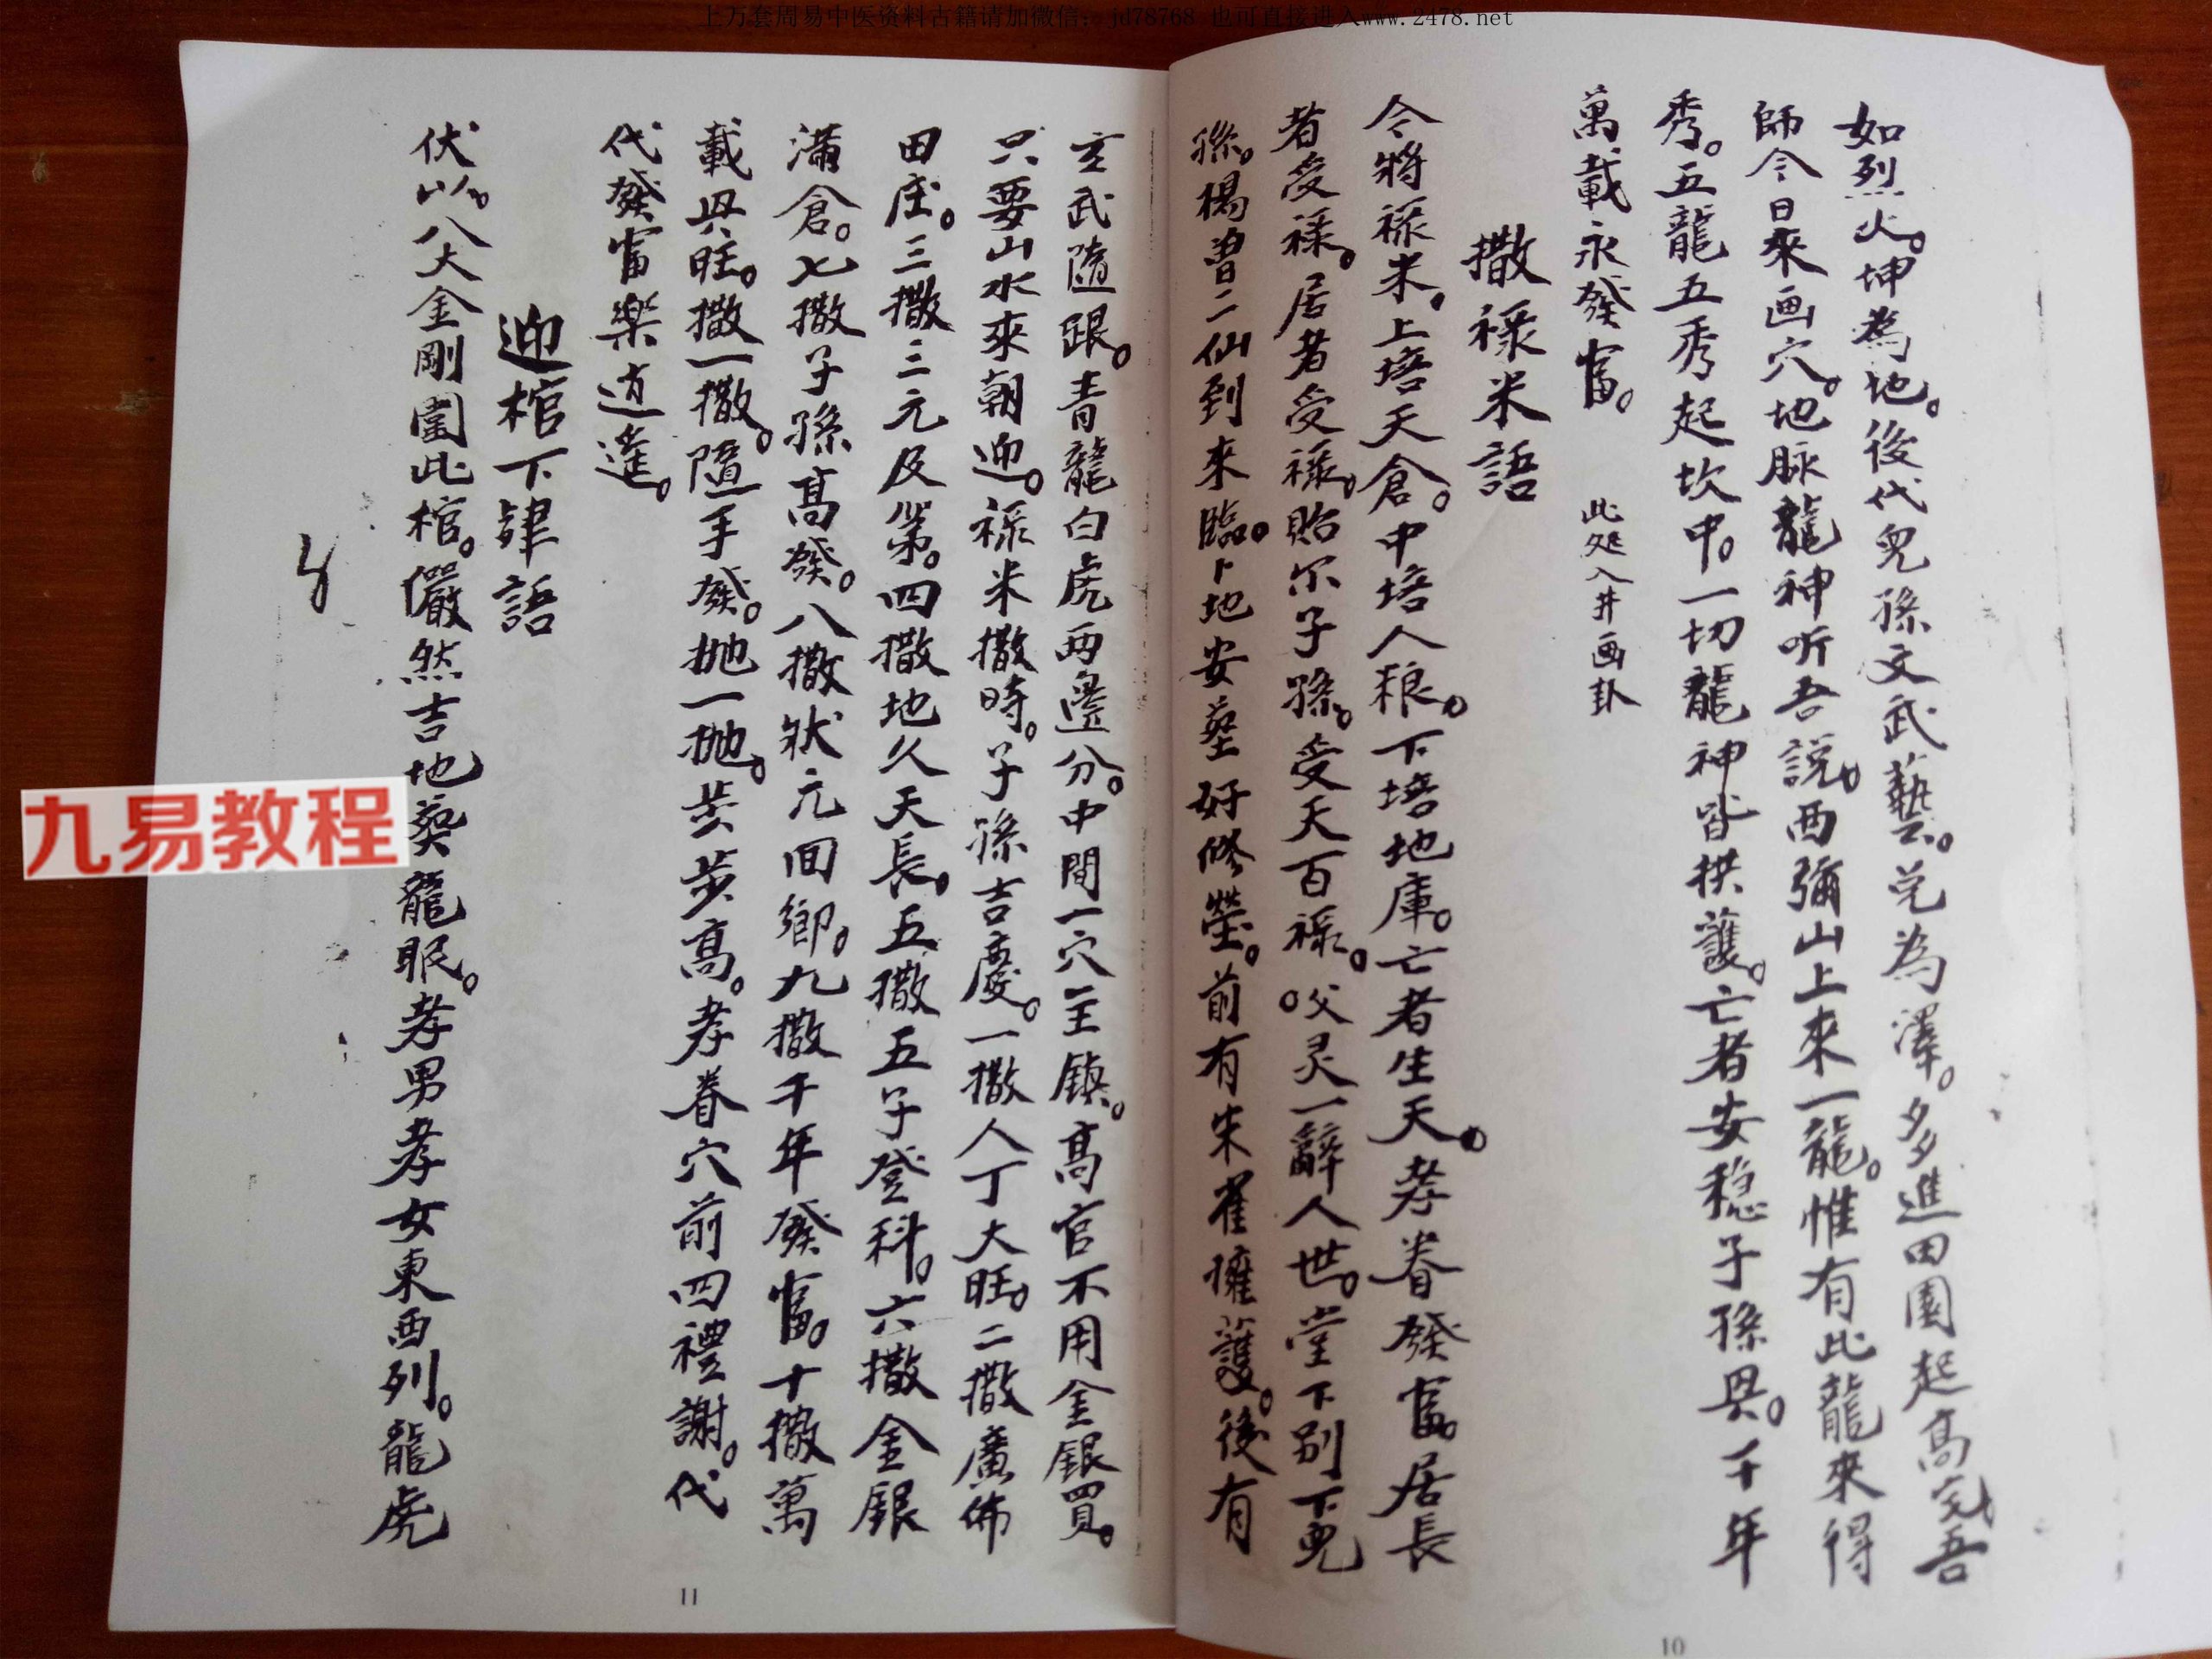 上万套周易中医资料古籍请加微信：jd78768 也可直接进入www.2478.net
如烈火。坤為地。後代兒孫文武藝。兑為澤。多進田園起高宅吾
師今日來画穴。地脉龍神听吾說。西彌山上來一龍。惟有此龍來得
秀。五龍五秀起坎中。一切龍神皆拱護。亡者安稳子孫興。千年
萬載永發富。 此处入井画卦
撒禄米語
今將禄米。上培天倉。中培人粮。下培地庫。亡者生天。孝眷發富。居長
者受禄。居者受禄。貽尔子孫。受天百禄。父灵一辭人世。堂下别下兒
孫。楊曽二仙到來臨。卜地安塟好修塋。前有朱雀擁護。後有
10
玄武隨跟。青龍白虎两邊分。中間一穴主鎮。高官不用金銀買。
只要山水來朝迎。禄米撒時。子孫吉慶。一撒人丁大旺。二撒廣佈
田庄。三撒三元及第。四撒地久天長。五撒五子登科。六撒金銀
滿倉。七撒子孫高發。八撒狀元回鄉。九撒千年發富。十撒萬
載興旺。撒一撒。隨手發。抛一抛。步步高。孝眷穴前四禮謝。代
代發富樂逍遥。
迎棺下肂語
伏以。八大金剛圍此棺。儼然吉地葵龍眠。孝男孝女東西列。龍虎
11
九易教程